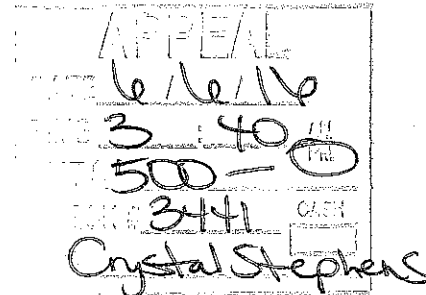 APPEAL
6/6/16
3 : 40 AM
PM
500 —
3441 CASH
Crystal Stephens